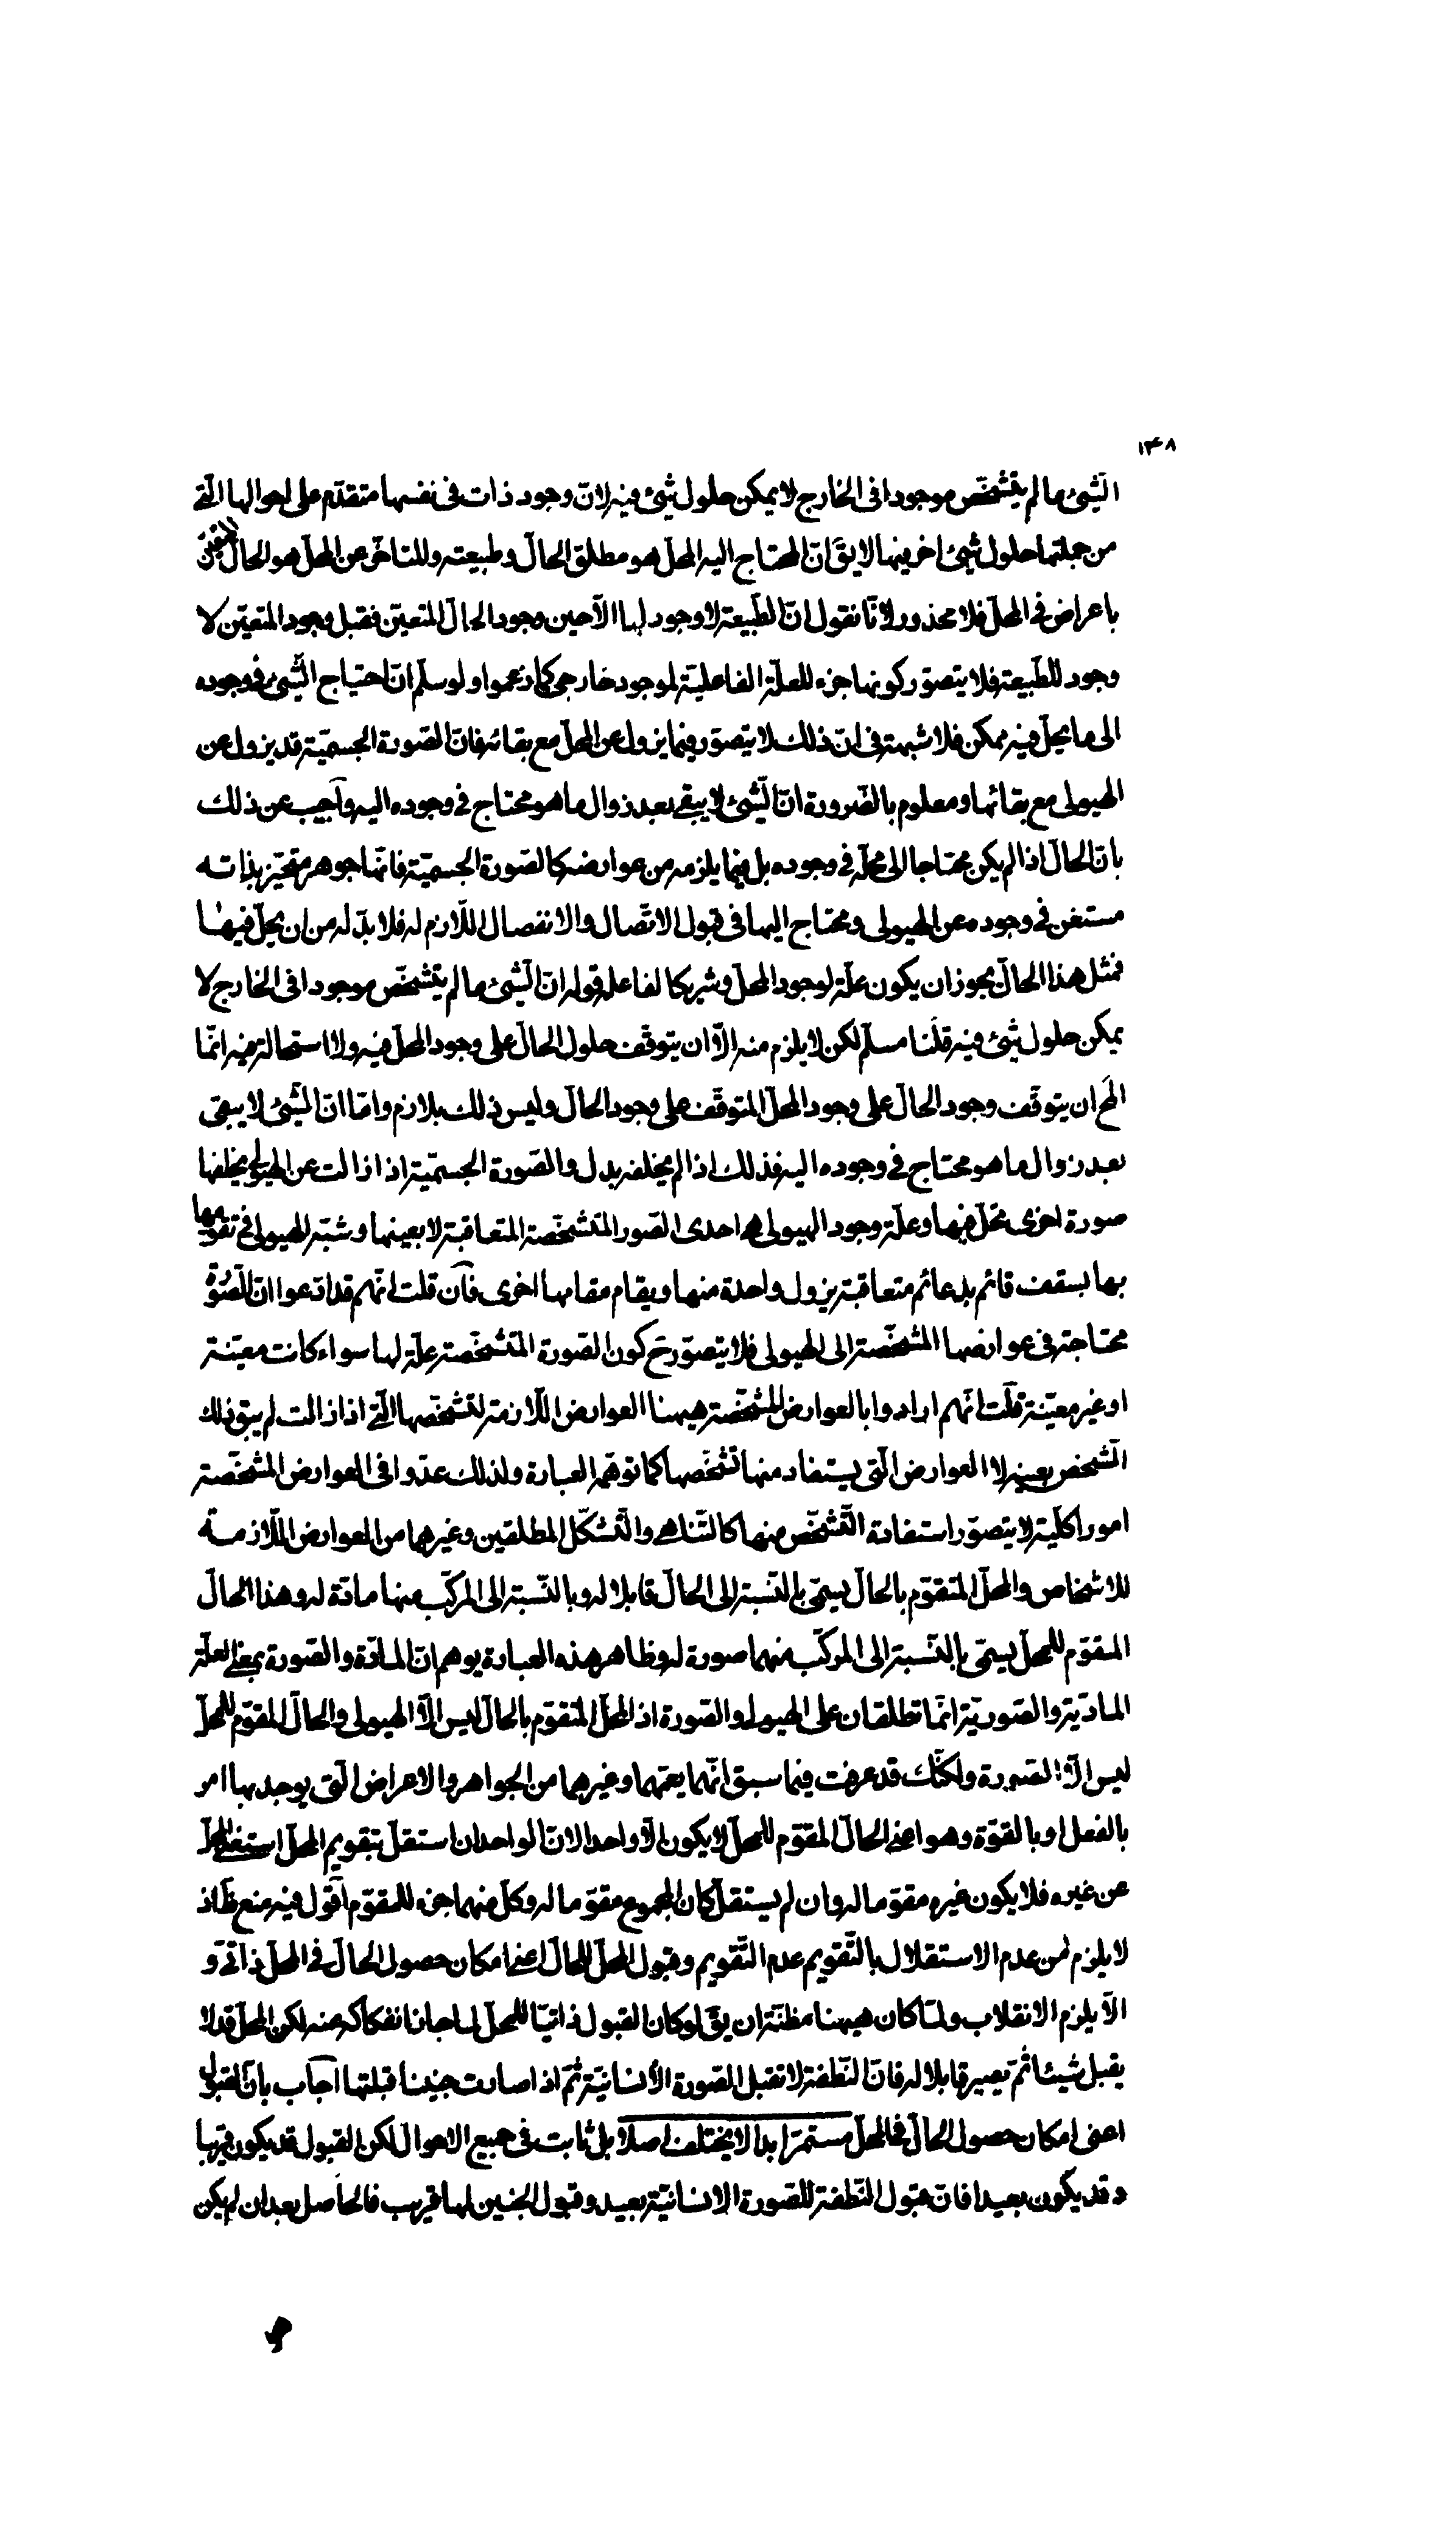 ۱۴۸
الشّیئ ما لم یتشخّص موجودا فی الخارج لا یمکن حلول شیئ فیه لانّ وجود ذات فی نفسها متقدّم علی احوالها الّتی
من جملتها حلول شیئ اخر فیها لا یقَ انّ المحتاج الیه المحلّ هو مطلق الحالّ و طبیعته و المتاخّر عن المحلّ هو الحالّ المتعیّن
باعراض فی المحلّ فلا محذور لانّا نقول انّ الطّبیعة لا وجود لها الّا حین وجود الحالّ المتعیّن فقبل وجود المتعیّن لا
وجود للطّبیعة فلا یتصوّر کونها جزء للعلّة الفاعلیّة لموجود خارجی کما زعموا و لو سلّم انّ احتیاج الشّیئ فی وجوده
الی ما یحلّ فیه ممکن فلا شبهة فی انّ ذلک لا یتصوّر فیما یزول عن المحلّ مع بقائه فانّ الصّورة الجسمیّة قد یزول عن
الهیولی مع بقائها و معلوم بالضّرورة انّ الشّیئ لا یبقی بعد زوال ما هو محتاج فی وجوده الیه و اجیب عن ذلک
بانّ الحالّ اذا لم یکن محتاجا الی محلّه فی وجوده بل فیما یلزمه من عوارضه کالصّورة الجسمیّة فانّها جوهر متحیّز بذاته
مستغن فی وجوده عن الهیولی و محتاج الیها فی قبول الاتّصال و الانفصال اللّازم له فلا بدّ له من ان یحلّ فیها
فمثل هذا الحالّ یجوز ان یکون علّة لوجود المحلّ و شریکا لفاعله قوله انّ الشّیئ ما لم یتشخّص موجودا فی الخارج لا
یمکن حلول شیئ فیه قلنا مسلّم لکن لا یلزم منه الّا ان یتوقّف حلول الحالّ علی وجود المحلّ فیه و لا استحالة فیه انّما
المح ان یتوقّف وجود الحالّ علی وجود المحلّ المتوقّف علی وجود الحالّ و لیس ذلک بلازم و امّا انّ الشّیئ لا یبقی
بعد زوال ما هو محتاج فی وجوده الیه فذلک اذا لم یخلفه بدل و الصّورة الجسمیّة اذا زالت عن الهیولی یخلفها
صورة اخری تحلّ فیها و علّة وجود الهیولی هی احدی الصّور المتشخّصة المتعاقبة لا بعینها و شبّه الهیولی فی تقوّمها
بها بسقف قائم بدعائم متعاقبة یزول واحدة منها و یقام مقامها اخری فان قلت انّهم قد ادّعوا انّ الصّورة
محتاجة فی عوارضها المشخّصة الی الهیولی فلا یتصوّر ح کون الصّورة المتشخّصة علّة لها سواء کانت معیّنة
او غیر معیّنة قلت انّهم ارادوا بالعوارض المشخّصة هیهنا العوارض اللّازمة لتشخّصها الّتی اذا زالت لم یبق ذلک
الشّخص بعینه لا العوارض الّتی یستفاد منها تشخّصها کما توهّمه العبارة و لذلک عدّوا فی العوارض المشخّصة
امورا کلّیّة لا یتصوّر استفادة التّشخّص منها کالتّناهی و التّشکّل المطلقین و غیرهما من العوارض اللّازمة
للاشخاص و المحلّ المتقوّم بالحالّ یسمّی بالنّسبة الی الحالّ قابلا له و بالنّسبة الی المرکّب منها مادّة له و هذا الحالّ
المقوّم للمحلّ یسمّی بالنّسبة الی المرکّب منهما صورة له و ظاهر هذه العبارة یوهم انّ المادّة و الصّورة بمعنی العلّة
المادّیّة و الصّوریّة انّما تطلقان علی الهیولی و الصّورة اذ المحلّ المتقوّم بالحالّ لیس الّا الهیولی و الحالّ المقوّم للمحلّ
لیس الّا الصّورة و لکنّک قد عرفت فیما سبق انّهما یعمّهما و غیرهما من الجواهر و الاعراض الّتی یوجد بها امر
بالفعل او بالقوّة و هو اعنی الحالّ المقوّم للمحلّ لا یکون الّا واحدا لانّ الواحد ان استقلّ بتقویم المحلّ استغنی المحلّ
عن غیره فلا یکون غیره مقوّما له و ان لم یستقلّ کان المجموع مقوّما له و کلّ منهما جزء للمقوّم اقول فیه منع ظ اذ
لا یلزم من عدم الاستقلال بالتّقویم عدم التّقویم و قبول المحلّ للحالّ اعنی امکان حصول الحالّ فی المحلّ ذاتی و
الّا یلزم الانقلاب و لمّا کان هیهنا مظنّة ان یقَ لو کان القبول ذاتیّا للمحلّ لما جاز انفکاکه عنه لکن المحلّ قد لا
یقبل شیئا ثمّ یصیر قابلا له فانّ النّطفة لا تقبل الصّورة الانسانیّة ثمّ اذا صارت جنینا قبلتها اجاب بانّ القبول
اعنی امکان حصول الحالّ فی المحلّ مستمرّ ابدا لا یختلف اصلا بل ثابت فی جمیع الاحوال لکن القبول قد یکون قریبا
و قد یکون بعیدا فانّ قبول النّطفة للصّورة الانسانیّة بعید و قبول الجنین لها قریب فالحاصل بعد ان لم یکن